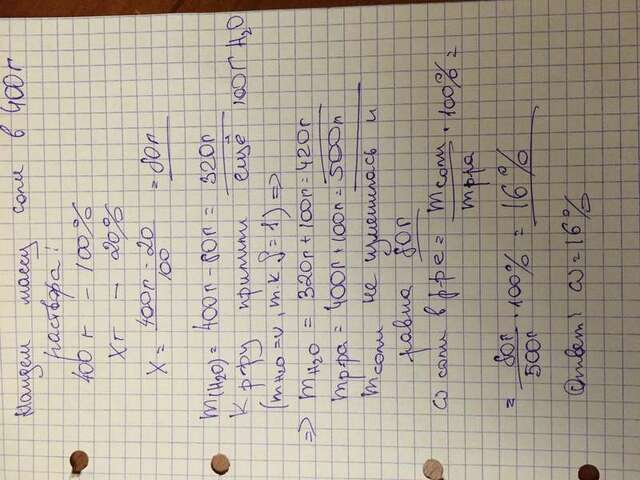 Найдем массу соли в 400г
раствора:
400г - 100%
Xг - 20%
X = 400г - 20 / 100 = 80г
m(H2O) = 400г - 80г = 320г
К р-ру прилили ещё 100г H2O
(mH2O = v, т.к ρ = 1) =>
=> mH2O = 320г + 100г = 420г
mр-ра = 400г + 100г = 500г
mсоли не изменилась и
равна 80г
ω соли в р-ре = mсоли / mр-ра · 100% =
= 80г / 500г · 100% = 16%
Ответ: ω = 16%